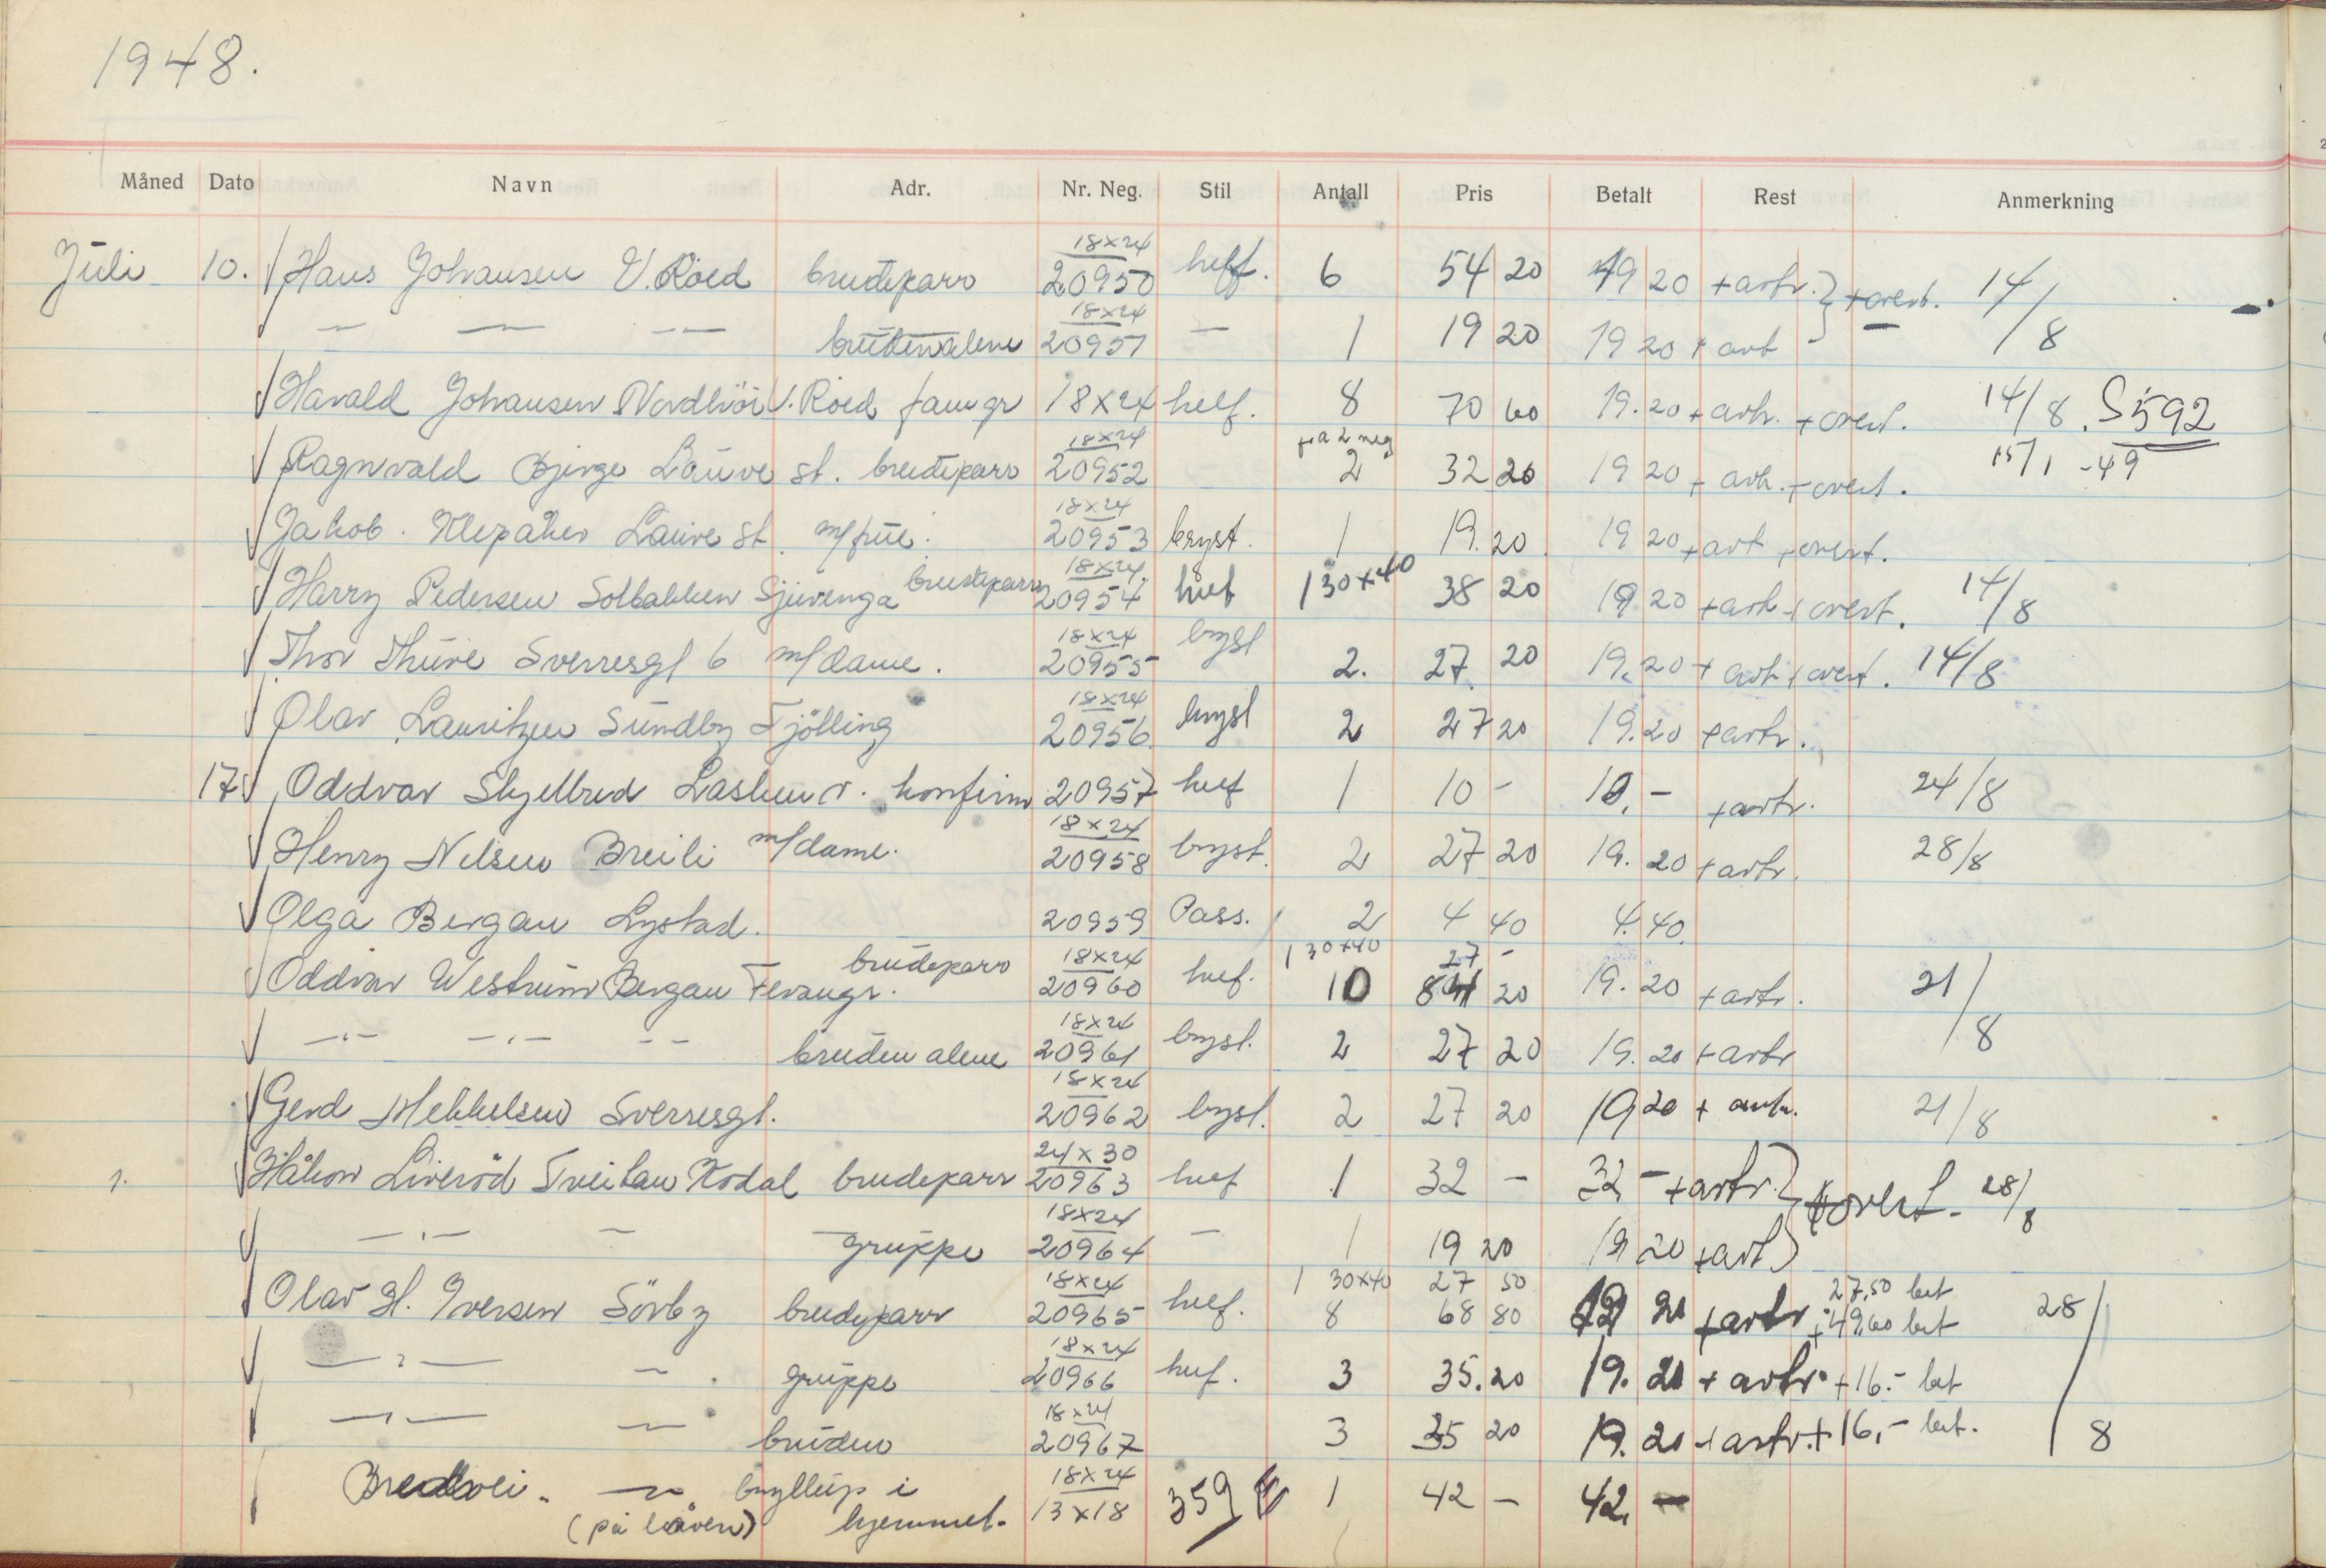 1948.
Måned Dato Navn Adr. Nr. Neg. Stil Antall Pris Betalt Rest Anmerkning
Juli 10. Hans Johansen V. Röed brudeparr 18x24 20950 helf. 6 54 20 49 20 + avtr. } + overt. 14/8
— — — — brudenalene 18x24 20951 — 1 19 20 19 20 + avt
Harald Johansen V. Röed famgr 18x24 helf. 8 70 60 19.20 + avtr. + overt. 14/8. S592
Ragnvald Bjerge Lauve st. brudeparr 18x24 20952 på 2 neg 2 32 20 19 20 + avtr. + overt. 15/1 -49
Jakob Klepaker Lauve st. m/frue. 18x24 20953 bryst. 1 19.20 19 20 + avt + overt.
Harry Pedersen Solbakken brudeparr 18x24 20954 1 30x40 38 20 19 20 + avtr + overt. 14/8
Thor Thüve Sverresgt 6 m/dame. 18x24 20955 bryst 2. 27. 20 19.20 + avtr + overt. 14/8
Olav Lauritzen Sundby Tjölling 18x24 20956 bryst 2 27 20 19.20 + avtr.
17. Oddvar Skjelbred Lasken v. konfirm 20957 helf 1 10 - 10.- + avtr. 24/8
Henry Nelsen Breili m/dame. 18x24 20958 bryst. 2 27 20 19. 20 + avtr. 28/8
Olga Bergan Lystad. 20959 Pass. 2 4 40 4.40.
Oddvar Westrum Bergan Tevangr. brudeparr 18x24 20960 helf. 1 30x40 27 - 10 84 20 19. 20 + avtr. 21/8
—"— —"— — — bruden alene 18x24 20961 bryst. 2 27 20 19. 20 + avtr
Gerd Mekkelsen Sverresgt. 18x24 20962 bryst. 2 27 20 19 20 + avtr. 21/8
Håkon Liveröd Tveitan Kodal brudeparr 24x30 20963 helf 1 32 - 32 - + avtr. } + overt. 28/8
—"— — gruppe 18x24 20964 — 1 19 20 19 20 + avt
Olav H. Iversen Sörby brudeparr 18x24 20965 helf. 1 30x40 27 50 8 68 80 19 20 + avtr 27,50 bet + 49,60 bet 28/8
—"— — gruppe 18x24 20966 helf. 3 35.20 19. 20 + avtr. + 16.- bet
—"— — bruden 18x24 20967 3 35 20 19. 20 + avtr. + 16,- bet.
— bryllup i 18x24 359 1 42 - 42. -
(på låven) hjemmet. 13x18